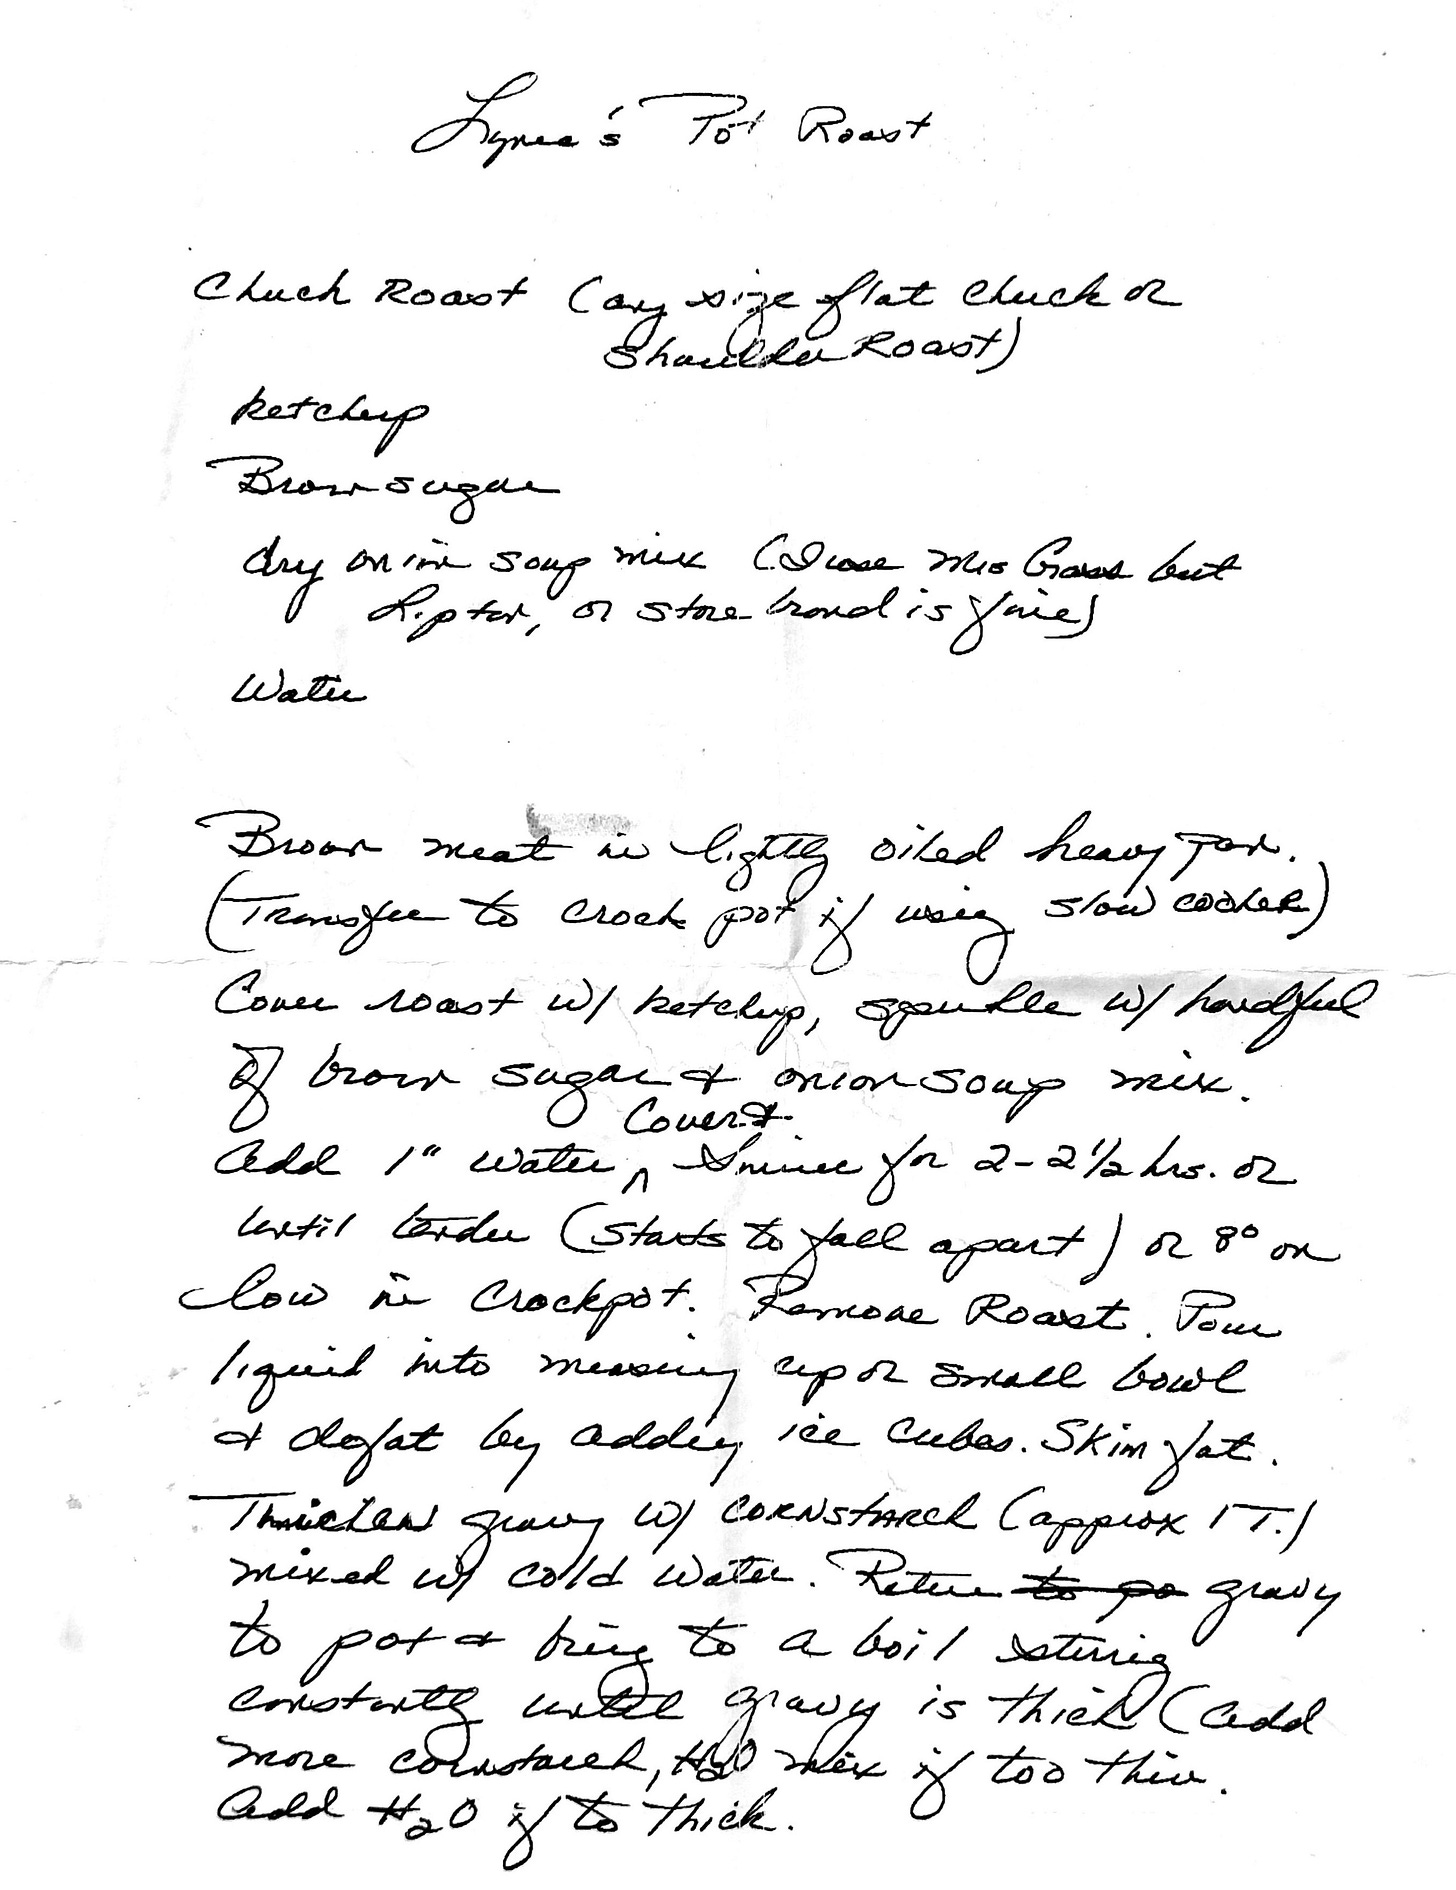 Lynea's Pot Roast
Chuck Roast (any size flat chuck or
shoulder Roast)
ketchup
Brown sugar
dry onion soup mix (I use Mrs Grass but
Lipton, or store brand is fine)
Water
Brown meat in lightly oiled heavy pan.
(Transfer to crock pot if using slow cooker)
Cover roast w/ ketchup, sprinkle w/ handful
of brown sugar & onion soup mix.
Cover &
Add 1" water, Simmer for 2-2½ hrs. or
until tender (starts to fall apart) or 8° on
low in crockpot. Remove Roast. Pour
liquid into measuring cup or small bowl
& defat by adding ice cubes. Skim fat.
Thicken gravy w/ cornstarch (approx 1 T.)
mixed w/ cold water. Return to po gravy
to pot & bring to a boil stirring
constantly until gravy is thick (add
more cornstarch, H2O mix if too thin.
Add H2O if to thick.